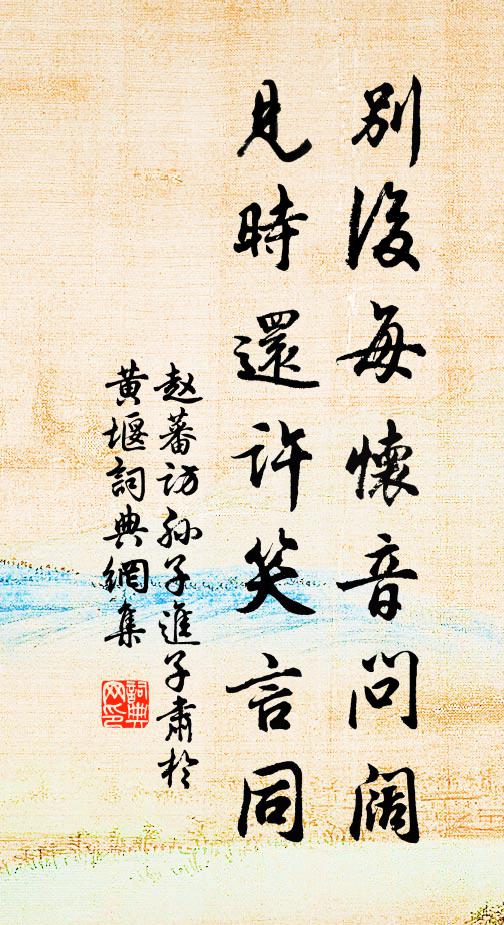 別後每懷音問闊
見時還許笑言同
赵蕃訪孙子進子肅於
黃堰詞典網集
詞典网印